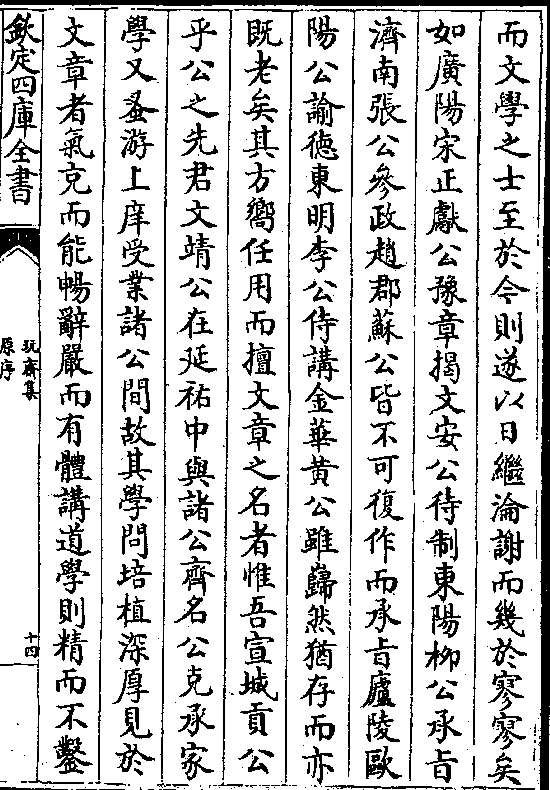 而文學之士至於今則遂以日繼淪謝而幾於寥寥矣
如廣陽宋正獻公豫章揭文安公待制東陽柳公承旨
濟南張公參政趙郡蘇公皆不可復作而承旨廬陵歐
陽公諭徳東明李公侍講金華黄公雖巋然猶存而亦
既老矣其方嚮任用而擅文章之名者惟吾宣城貢公
乎公之先君文靖公在延祐中與諸公齊名公克承家
學又蚤游上庠受業諸公間故其學問培植深厚見於
文章者氣充而能暢辭嚴而有體講道學則精而不鑿
欽定四庫全書
玩齋集
原序
十四